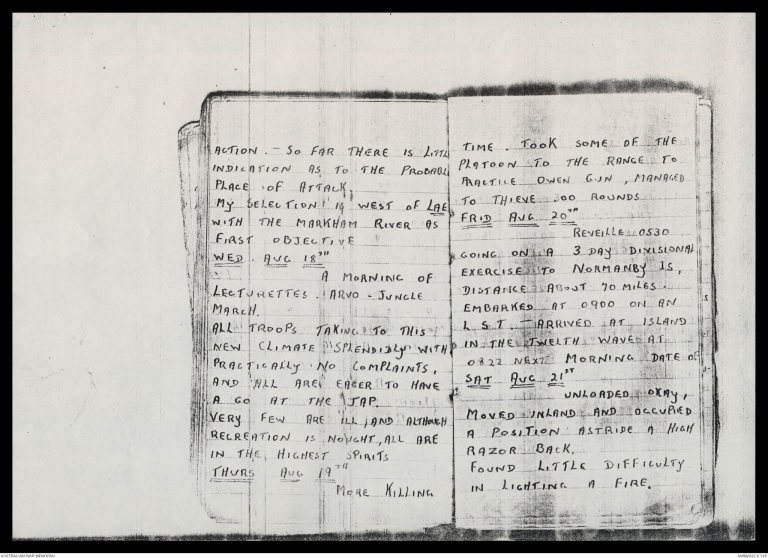 ACTION. - SO FAR THERE IS LITTL
INDICATION AS TO THE PROBABL
PLACE OF ATTACK.
MY SELECTION IS WEST OF LAE
WITH THE MARKHAM RIVER AS
FIRST OBJECTIVE
WED AUG 18TH
A MORNING OF
LECTURETTES. ARVO - JUNGLE
MARCH.
ALL TROOPS TAKING TO THIS
NEW CLIMATE SPLENDIDLY WITH
PRACTICALLY NO COMPLAINTS,
AND ALL ARE EAGER TO HAVE
A GO AT THE JAP.
VERY FEW ARE ILL, AND ALTHOUGH
RECREATION IS NOUGHT, ALL ARE
IN THE HIGHEST SPIRITS
THURS AUG 19TH
MORE KILLING
TIME. TOOK SOME OF THE
PLATOON TO THE RANGE TO
PRACTICE OWEN GUN, MANAGED
TO THIEVE 300 ROUNDS
FRID AUG 20TH
REVEILLE 0530
GOING ON A 3 DAY DIVISIONAL
EXERCISE TO NORMANBY IS,
DISTANCE ABOUT 70 MILES.
EMBARKED AT 0900 ON AN
L.S.T. - ARRIVED AT ISLAND
IN THE TWELTH WAVE AT
0822 NEXT MORNING DATE OF
SAT AUG 21ST
UNLOADED OKAY,
MOVED INLAND AND OCCUPIED
A POSITION ASTRIDE A HIGH
RAZOR BACK.
FOUND LITTLE DIFFICULTY
IN LIGHTING A FIRE.
AUSTRALIAN WAR MEMORIAL